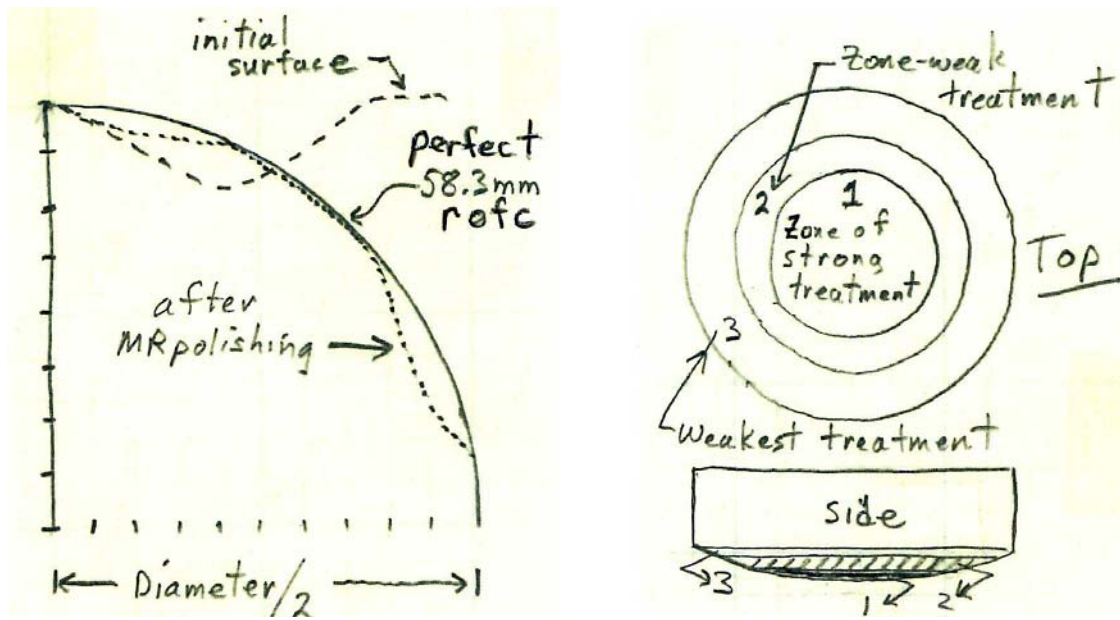 initial
surface
perfect
58.3mm
rofc
after
MR polishing
Diameter/2
Zone-weak
treatment
2
1
Zone of
strong
treatment
Top
3
Weakest treatment
side
3
1
2